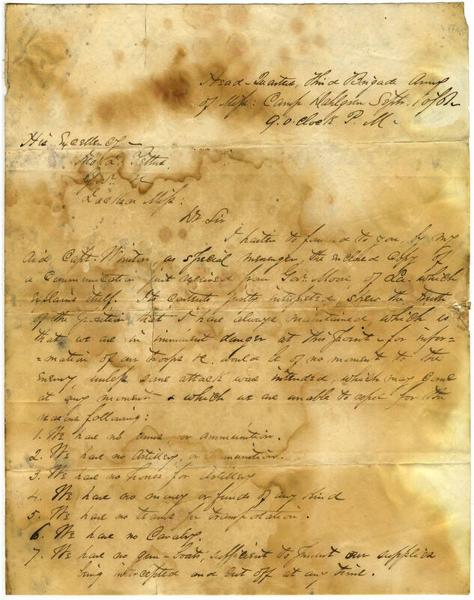 Head-Quarters, Third Brigade Army
of Miss: Camp Dahlgren Sept. 1861
9. o clock P. M.
His Excellency
Jno. J. Pettus
Jackson Miss:
Dr Sir
I hasten to forward to you, by my
aid Capt. Winston, as special messenger, the inclosed copy of
a communication just received from Gov. Moore of La. which
explains itself. Its contents justly interpreted, shew the truth
of the position that I have always maintained, which is
that we are in imminent danger at this point - for infor-
-mation of our troops &c. would be of no moment to the
enemy, unless some attack was intended, which may come
at any moment & which we are unable to cope for the
reasons following:
1. We have no arms or ammunition.
2. We have no Artillery, or ammunition.
3. We have no horses for Artillery
4. We have no money or funds of any kind
5. We have no teams for transportation.
6. We have no Cavalry.
7. We have no gun-boats, sufficient to prevent our supplies
being intercepted and cut off at any time.